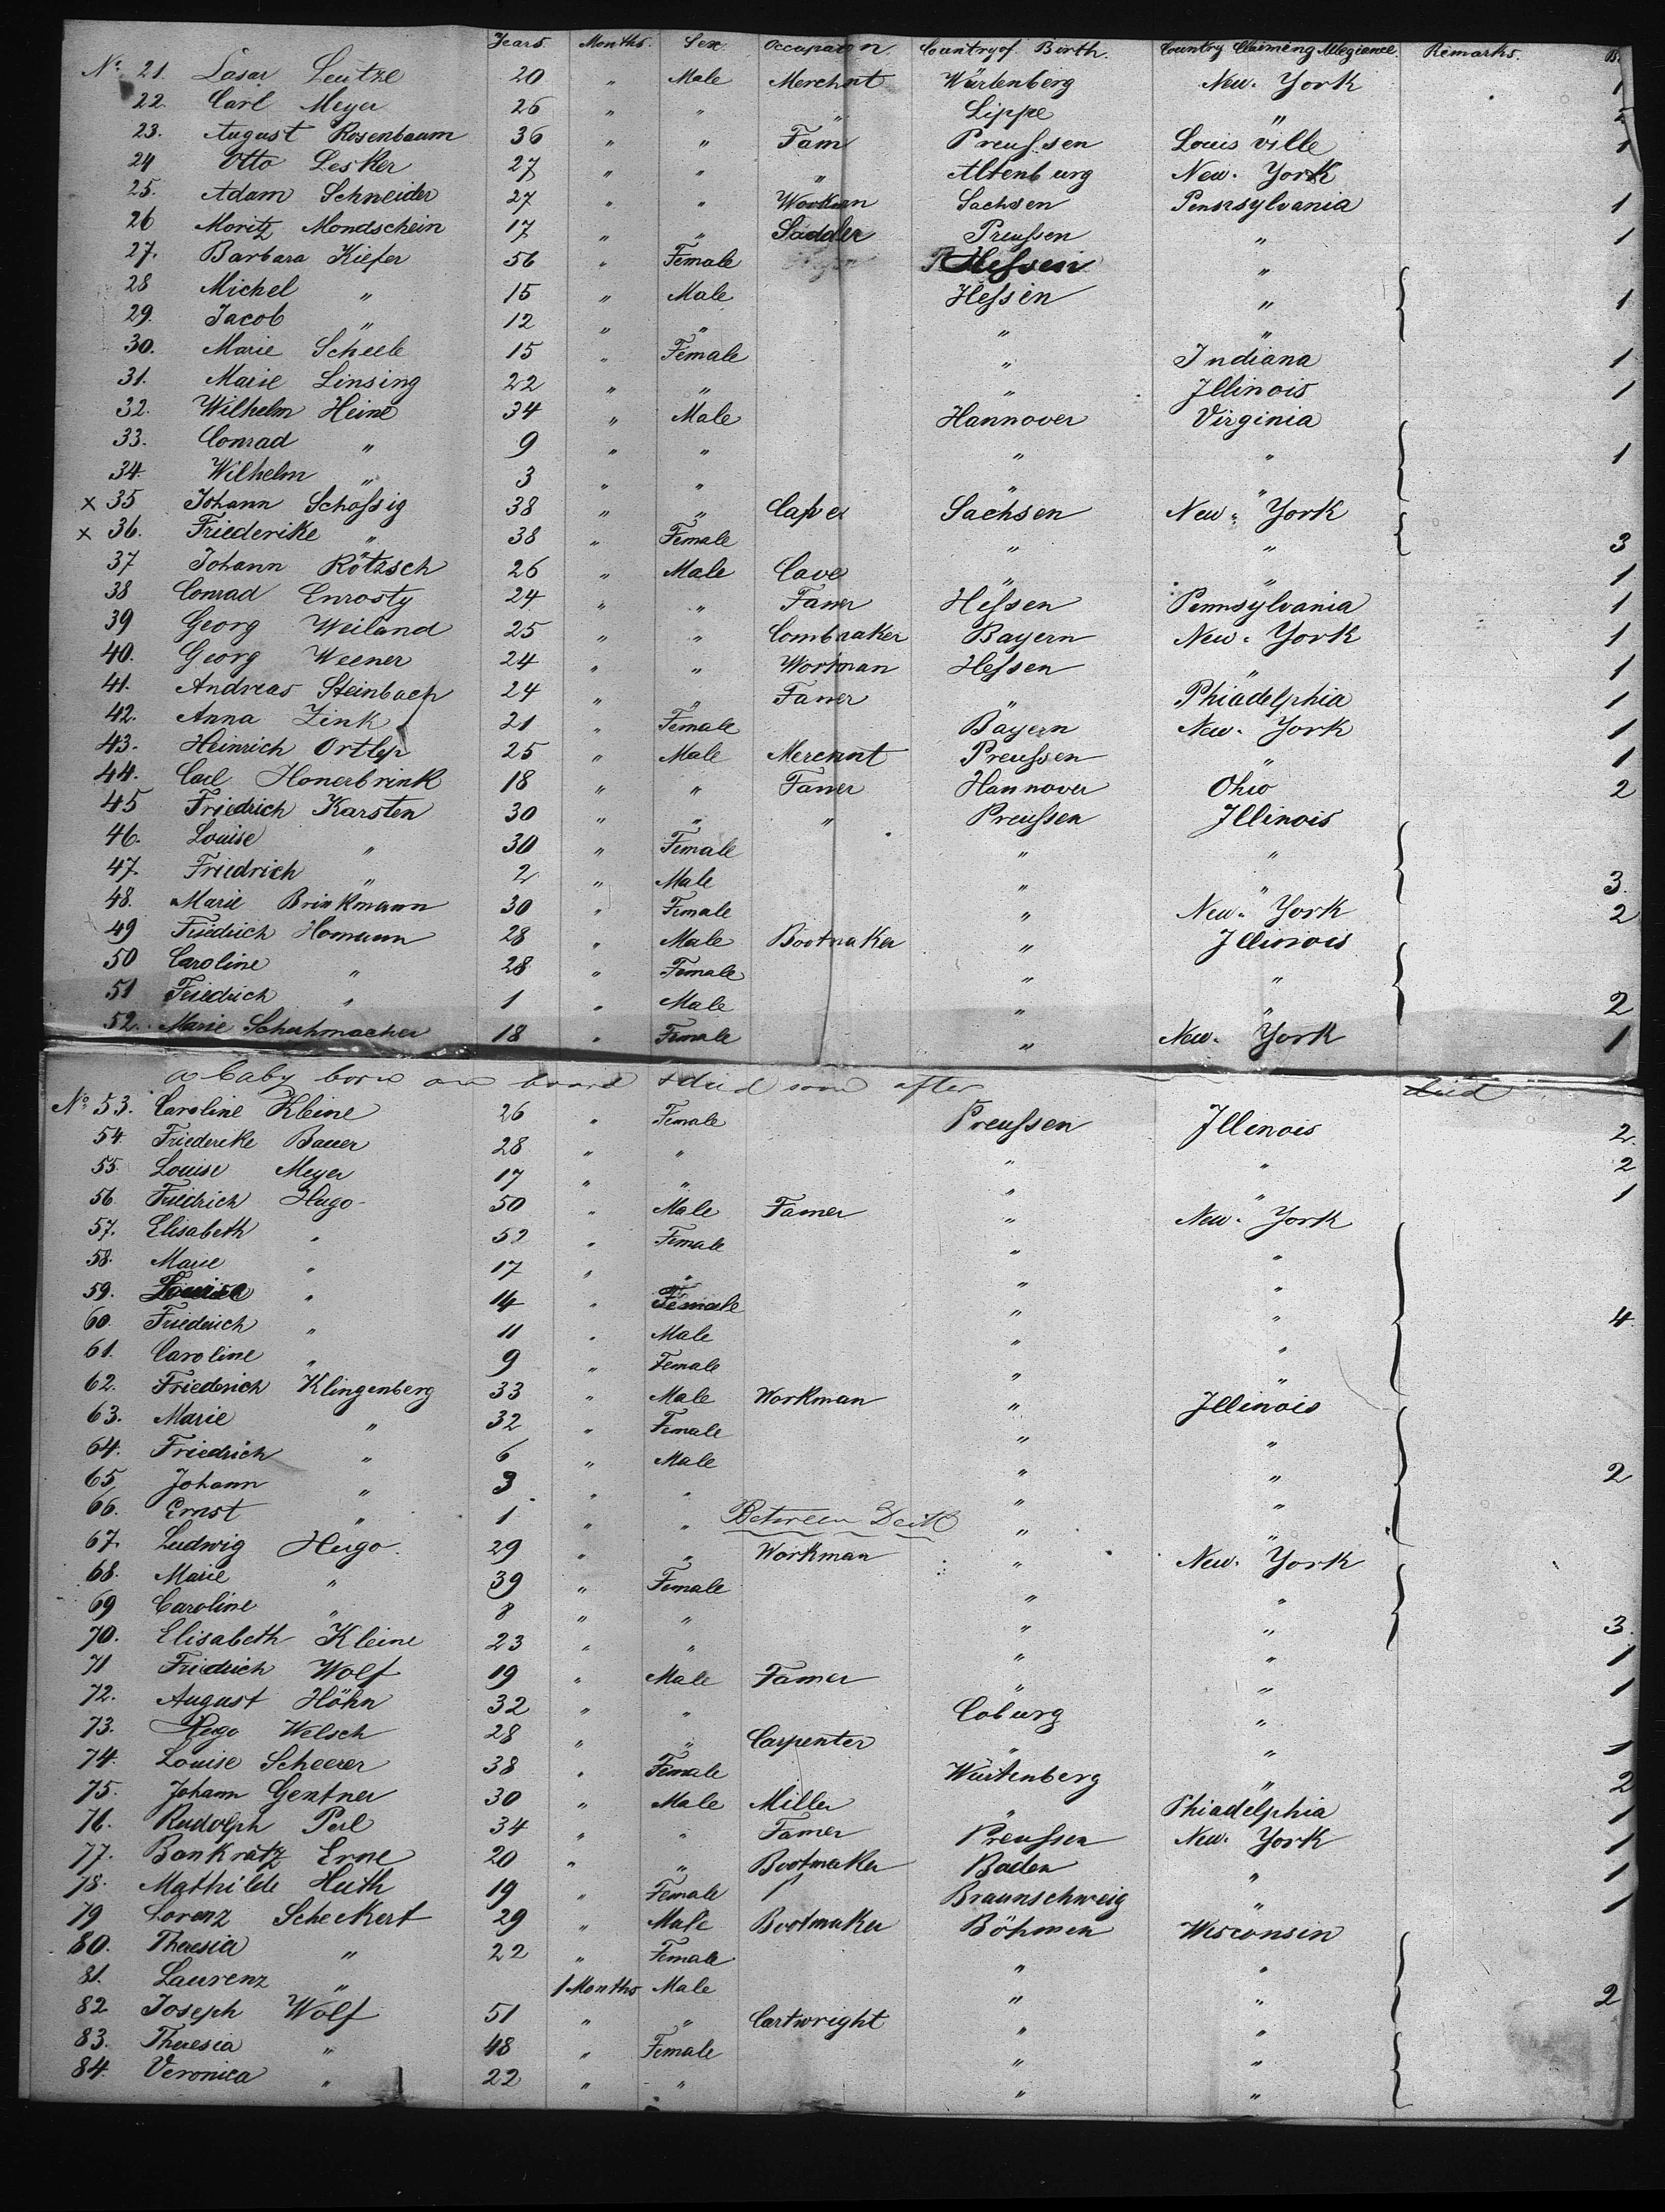 Years. Months. Sex. Occupation. Country of Birth. Country Claiming Allegiance. Remarks. B.
No. 21. Lasar Leutze 20 " Male Merchnt Würtenberg New-York 1
22. Carl Meyer 26 " " " Lippe " 2
23. August Rosenbaum 36 " " Fam Preußen Louisville 1
24 Otto Lesker 27 " " " Altenburg New-York
25. Adam Schneider 27 " " Workman Sachsen Pennsylvania 1
26 Moritz Mondschein 17 " " Saddler Preußen " 1
27. Barbara Kiefer 56 " Female Heßen "
28 Michel " 15 " Male Heßen " 1
29. Jacob " 12 " " " "
30. Marie Scheele 15 " Female " Indiana 1
31. Marie Linsing 22 " " " Illinois 1
32. Wilhelm Heine 34 " Male Hannover Virginia
33. Conrad " 9 " " " " 1
34. Wilhelm " 3 " " " "
x 35 Johann Schößig 38 " " Sachsen New-York
x 36. Friederike " 38 " Female " " 3
37 Johann Rötzsch 26 " Male " " 1
38 Conrad Enrosty 24 " " Famer Heßen Pennsylvania 1
39 Georg Weiland 25 " " Combmaker Bayern New-York 1
40. Georg Weener 24 " " Workman Heßen " 1
41. Andreas Steinbach 24 " " Famer " Phiadelphia 1
42. Anna Zink 21 " Female Bayern New-York 1
43. Heinrich Ortlep 25 " Male Merchnt Preußen " 1
44. Carl Honerbrink 18 " " Famer Hannover Ohio 2
45 Friedrich Karsten 30 " " " Preußen Illinois
46. Louise " 30 " Female " "
47. Friedrich " 2 " Male " " 3.
48. Marie Brinkmann 30 " Female " New-York 2
49 Friedrich Homann 28 " Male Bootmaker " Illinois
50 Caroline " 28 " Female " "
51 Friedrich " 1 " Male " " 2
52. Marie Schuhmacher 18 " Female " New-York 1
a baby born on board & died soon after died
No. 53. Caroline Kleine 26 " Female Preußen Illinois 2.
54. Friedereke Bauer 28 " " " " 2
55. Louise Meyer 17 " " " " 1
56 Friedrich Hugo 50 " Male Famer " New-York
57. Elisabeth " 52 " Female " "
58. Marie " 17 " " " "
59. Louise " 14 " Female " " 4
60. Friedrich " 11 " Male " "
61. Caroline " 9 " Female " "
62. Friederich Klingenberg 33 " Male Workman " Illinois
63. Marie " 32 " Female " "
64. Friedrich " 6 " Male " " 2
65 Johann " 3 " " " "
66. Ernst " 1 " " Between Deck " "
67. Ludwig Hugo. 29 " " Workman " New-York
68. Marie " 39 " Female " "
69 Caroline " 8 " " " " 3.
70. Elisabeth Kleine 23 " " " " 1
71 Friedrich Wolf 19 " Male Famer " " 1
72. August Höhn 32 " " Coburg "
73. Hugo Welsch 28 " " Carpenter " " 1
74. Louise Scheerer 38 " Female Würtenberg " 2
75. Johann Gentner 30 " Male Miller " Phiadelphia 1
76. Rudolph Perl 34 " " Famer Preußen New-York 1
77. Bankratz Erne 20 " " Bootmaker Baden " 1
78. Mathilde Huth 19 " Female Braunschweig " 1
79 Lorenz Scheckert 29 " Male Bootmaker Böhmen Wisconsin
80. Theresia " 22 " Female " "
81. Laurenz " 1 Months Male " " 2
82 Joseph Wolf 51 " " Cartwright " "
83. Theresia " 48 " Female " "
84. Veronica " 22 " " " "